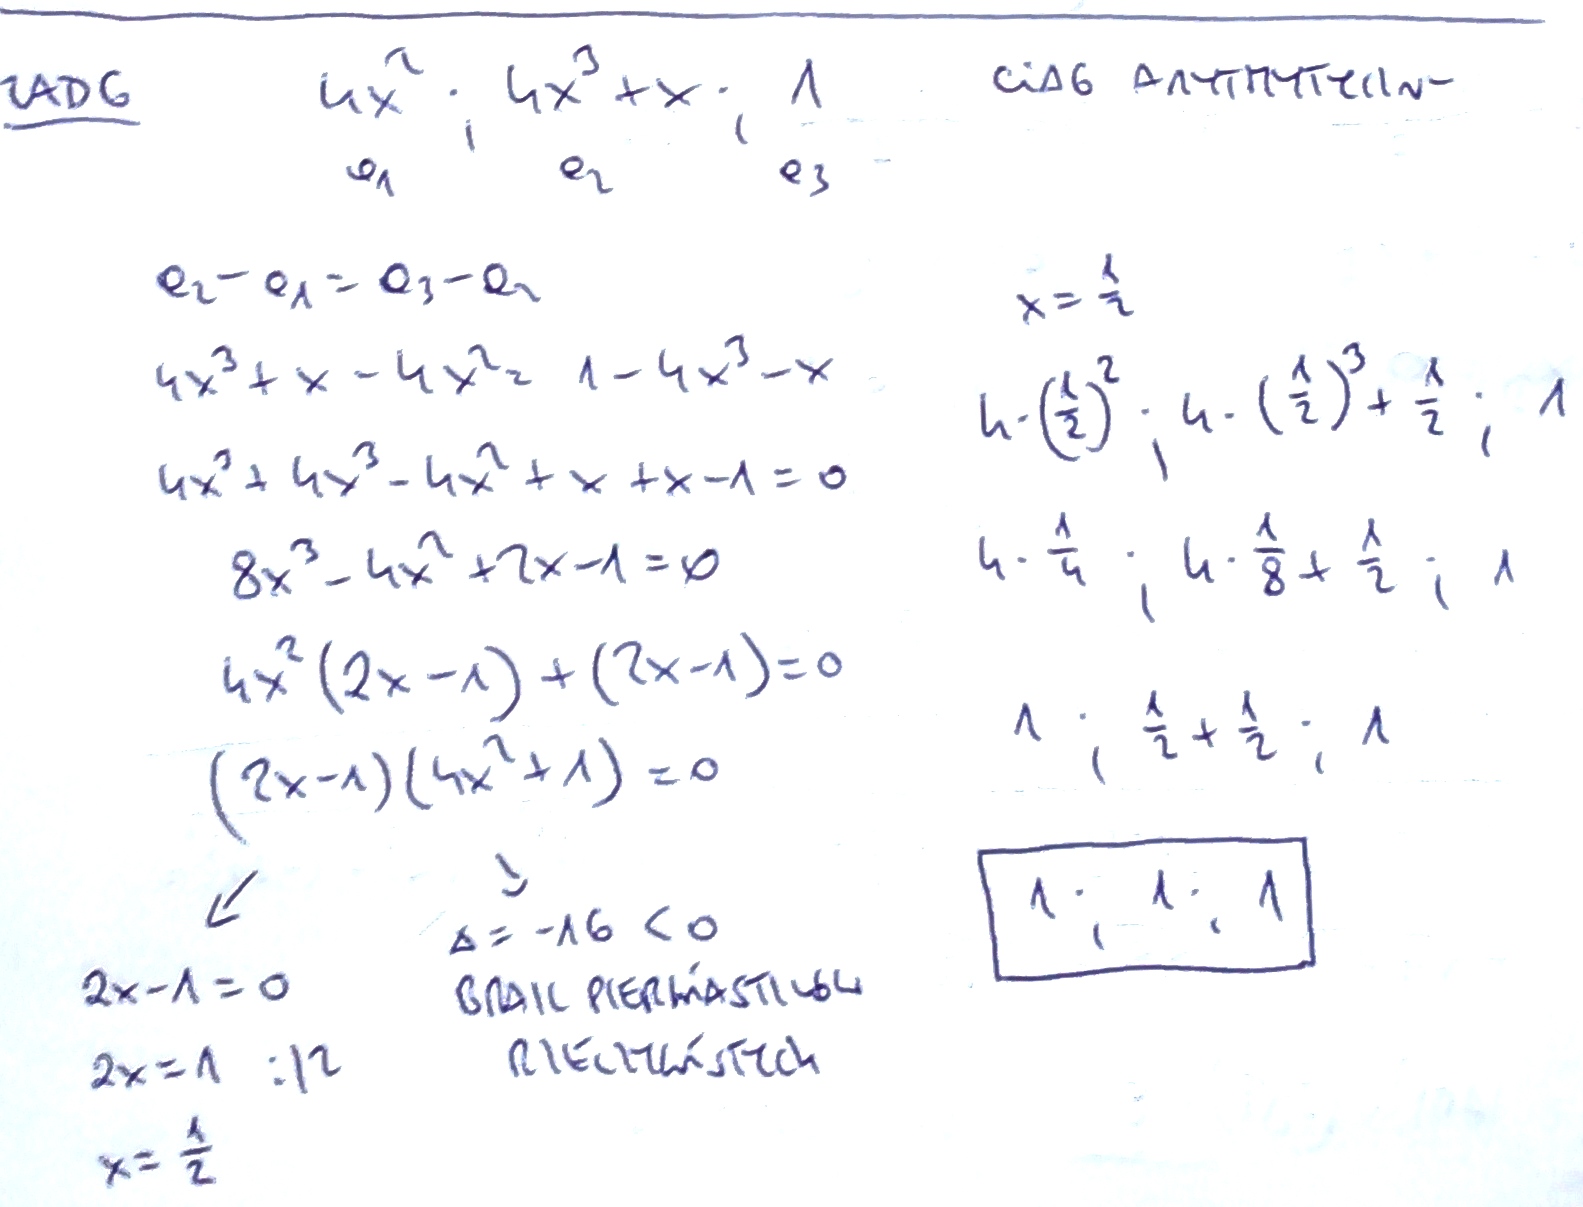 ZAD 6 4x² ; 4x³+x ; 1 CIĄG ARYTMETYCZNY
a₁ a₂ a₃
a₂ - a₁ = a₃ - a₂
4x³ + x - 4x² = 1 - 4x³ - x
4x³ + 4x³ - 4x² + x + x - 1 = 0
8x³ - 4x² + 2x - 1 = 0
4x²(2x-1) + (2x-1) = 0
(2x-1)(4x²+1) = 0
↙ ↘
2x-1 = 0
2x = 1 :|2
x = 1/2
Δ = -16 < 0
BRAK PIERWIASTKÓW
RZECZYWISTYCH
x = 1/2
4·(1/2)² ; 4·(1/2)³ + 1/2 ; 1
4·1/4 ; 4·1/8 + 1/2 ; 1
1 ; 1/2 + 1/2 ; 1
1 ; 1 ; 1